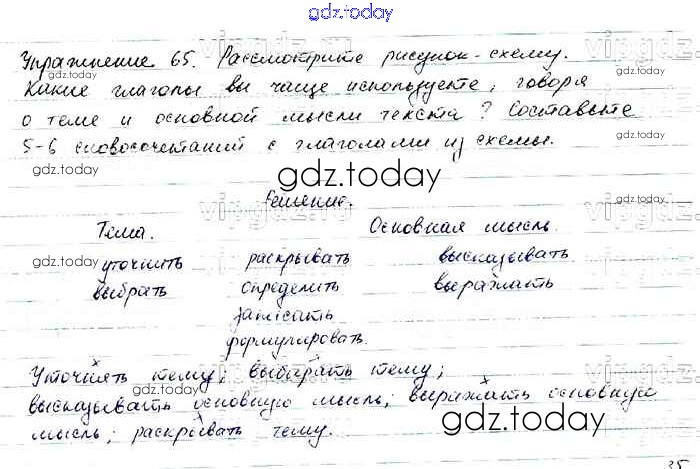 gdz.today
Упражнение 65. Рассмотрите рисунок-схему.
gdz.today
Какие глаголы вы чаще используете, говоря
о теме и основной мысли текста? Составьте
5-6 словосочетаний с глаголами из схемы.
gdz.today
Решение.
Тема. Основная мысль.
уточнить раскрывать высказывать
выбрать определить выражать
записать
формулировать.
Уточнять тему; выбирать тему;
высказывать основную мысль; выражать основную
мысль; раскрывать тему.
gdz.today
35